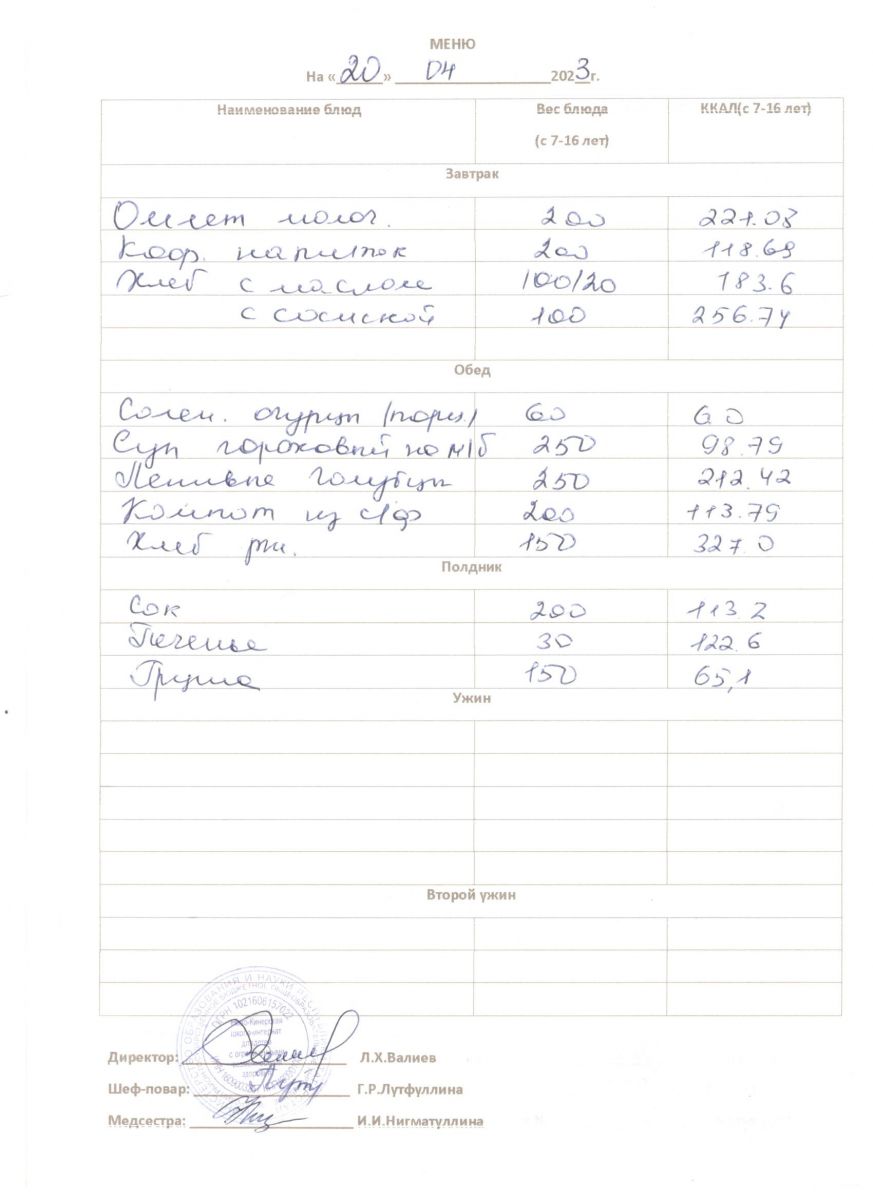 МЕНЮ
На «20» 04 2023г.
Наименование блюд Вес блюда (с 7-16 лет) ККАЛ(с 7-16 лет)
Завтрак
Омлет молоч. 200 221.03
Коф. напиток 200 118.69
Хлеб с маслом 100/20 183.6
с сосиской 100 256.74
Обед
Солен. огурцы /порц./ 60 60
Суп гороховый на м/б 250 98.79
Ленивые голубцы 250 212.42
Компот из с/ф 200 113.79
Хлеб рж. 150 327.0
Полдник
Сок 200 113.2
Печенье 30 122.6
Груша 150 65,1
Ужин
Второй ужин
Директор: Л.Х.Валиев
Шеф-повар: Г.Р.Лутфуллина
Медсестра: И.И.Нигматуллина